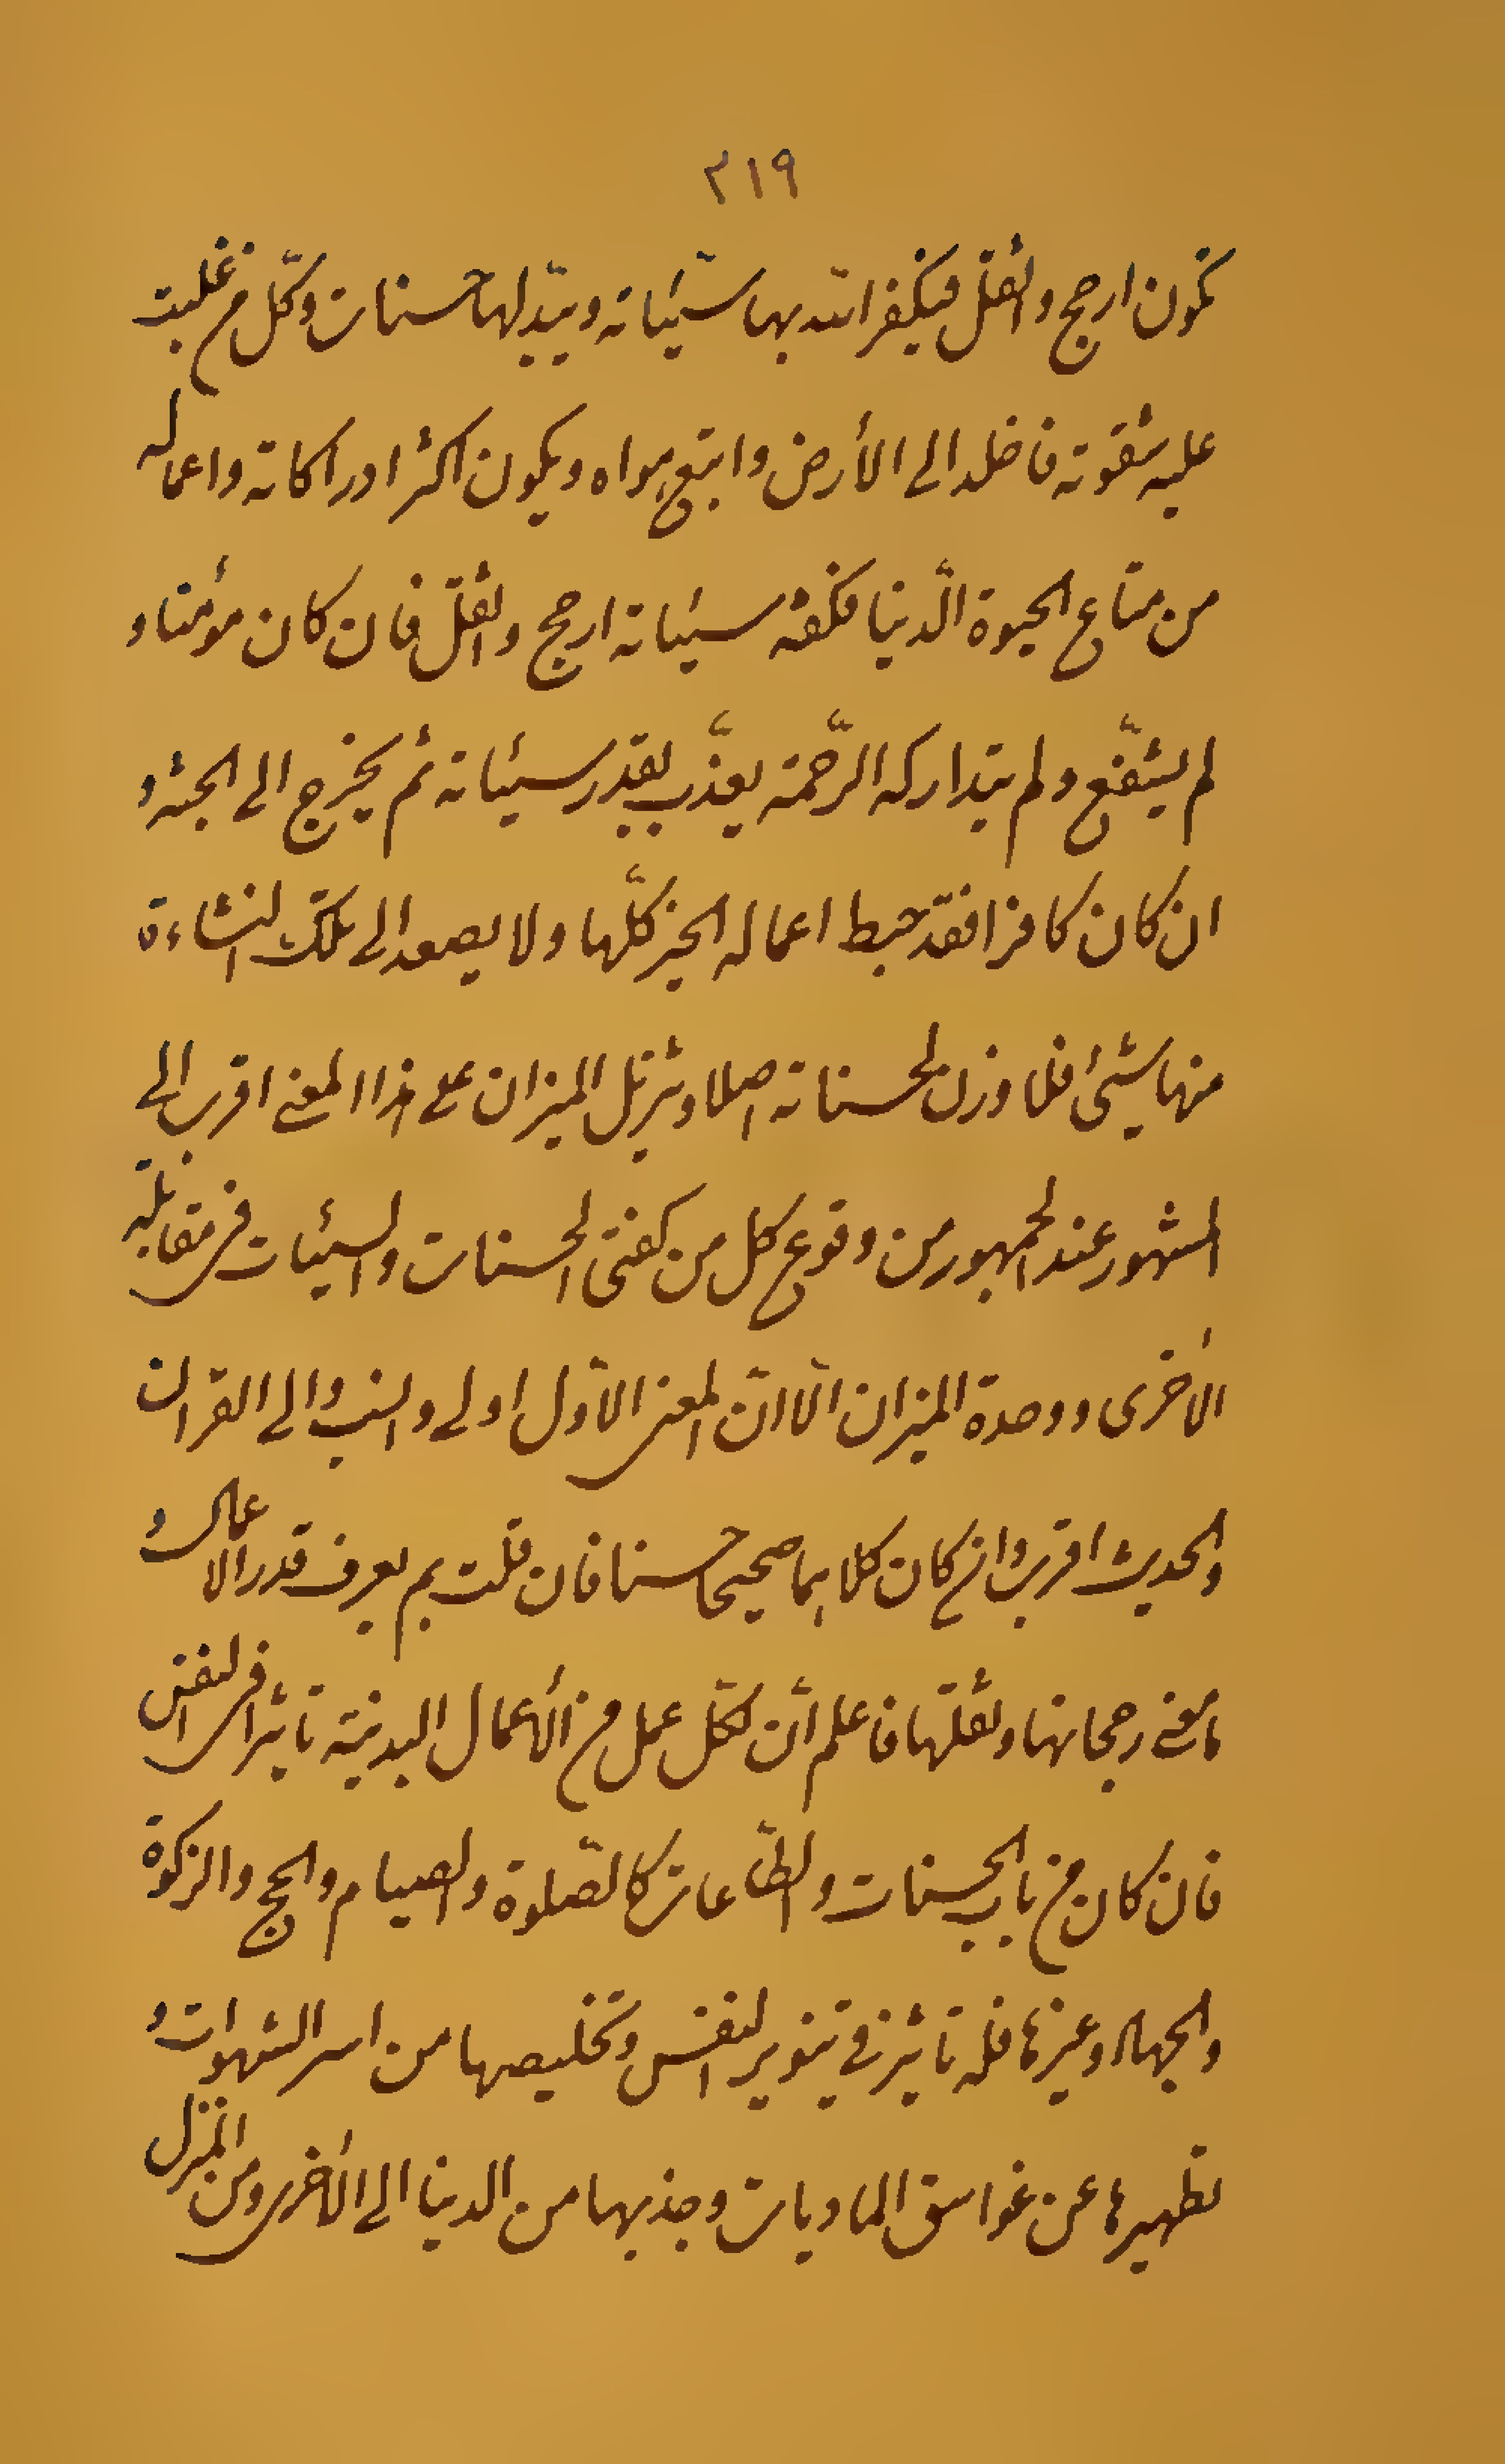 ٣١٩
تكون ارجح واثقل فيكفر الله بها سيّئاته ويبدّلها حسنات وكلّ من غلبت
عليه شقوته فاخلد الى الأرض واتبع هواه ويكون اكثر ادراكاته واعماله
من متاع الحيوة الدّنيا فكفة سيئاته ارجح واثقل فان كان مؤمنا و
لم يشفّع ولم يتداركه الرّحمة يعذّب بقدر سيئاته ثم يخرج الى الجنة و
ان كان كافرا فقد حبط اعماله الخير كلّها ولا يصعد الى تلك النشاءة
منها شئ فلا وزن لحسناته اصلا وتنزيل الميزان على هذا المعنى اقرب الى
المشهور عند الجمهور من وقوع كل من كفتى الحسنات والسيئات فى مقابلة
الأخرى ووحدة الميزان الّا انّ المعنى الأوّل اولى وانسب والى القرآن
والحديث اقرب وان كان كلاهما صحيحا حسنا فان قلت بم يعرف قدر الاعمال و
ما معنى رجحانها وثقلها فاعلم أنّ لكلّ عمل من الأعمال البدنيّة تاثيرا فى النفس
فان كان من باب الحسنات والطّاعات كالصّلوة والصيام والحج والزكوة
والجهاد وغيرها فله تاثير فى تنوير النفس وتخليصها من اسر الشهوات و
تطهيرها عن غواسق الماديات وجذبها من الدنيا الى الأخرى ومن المنزل